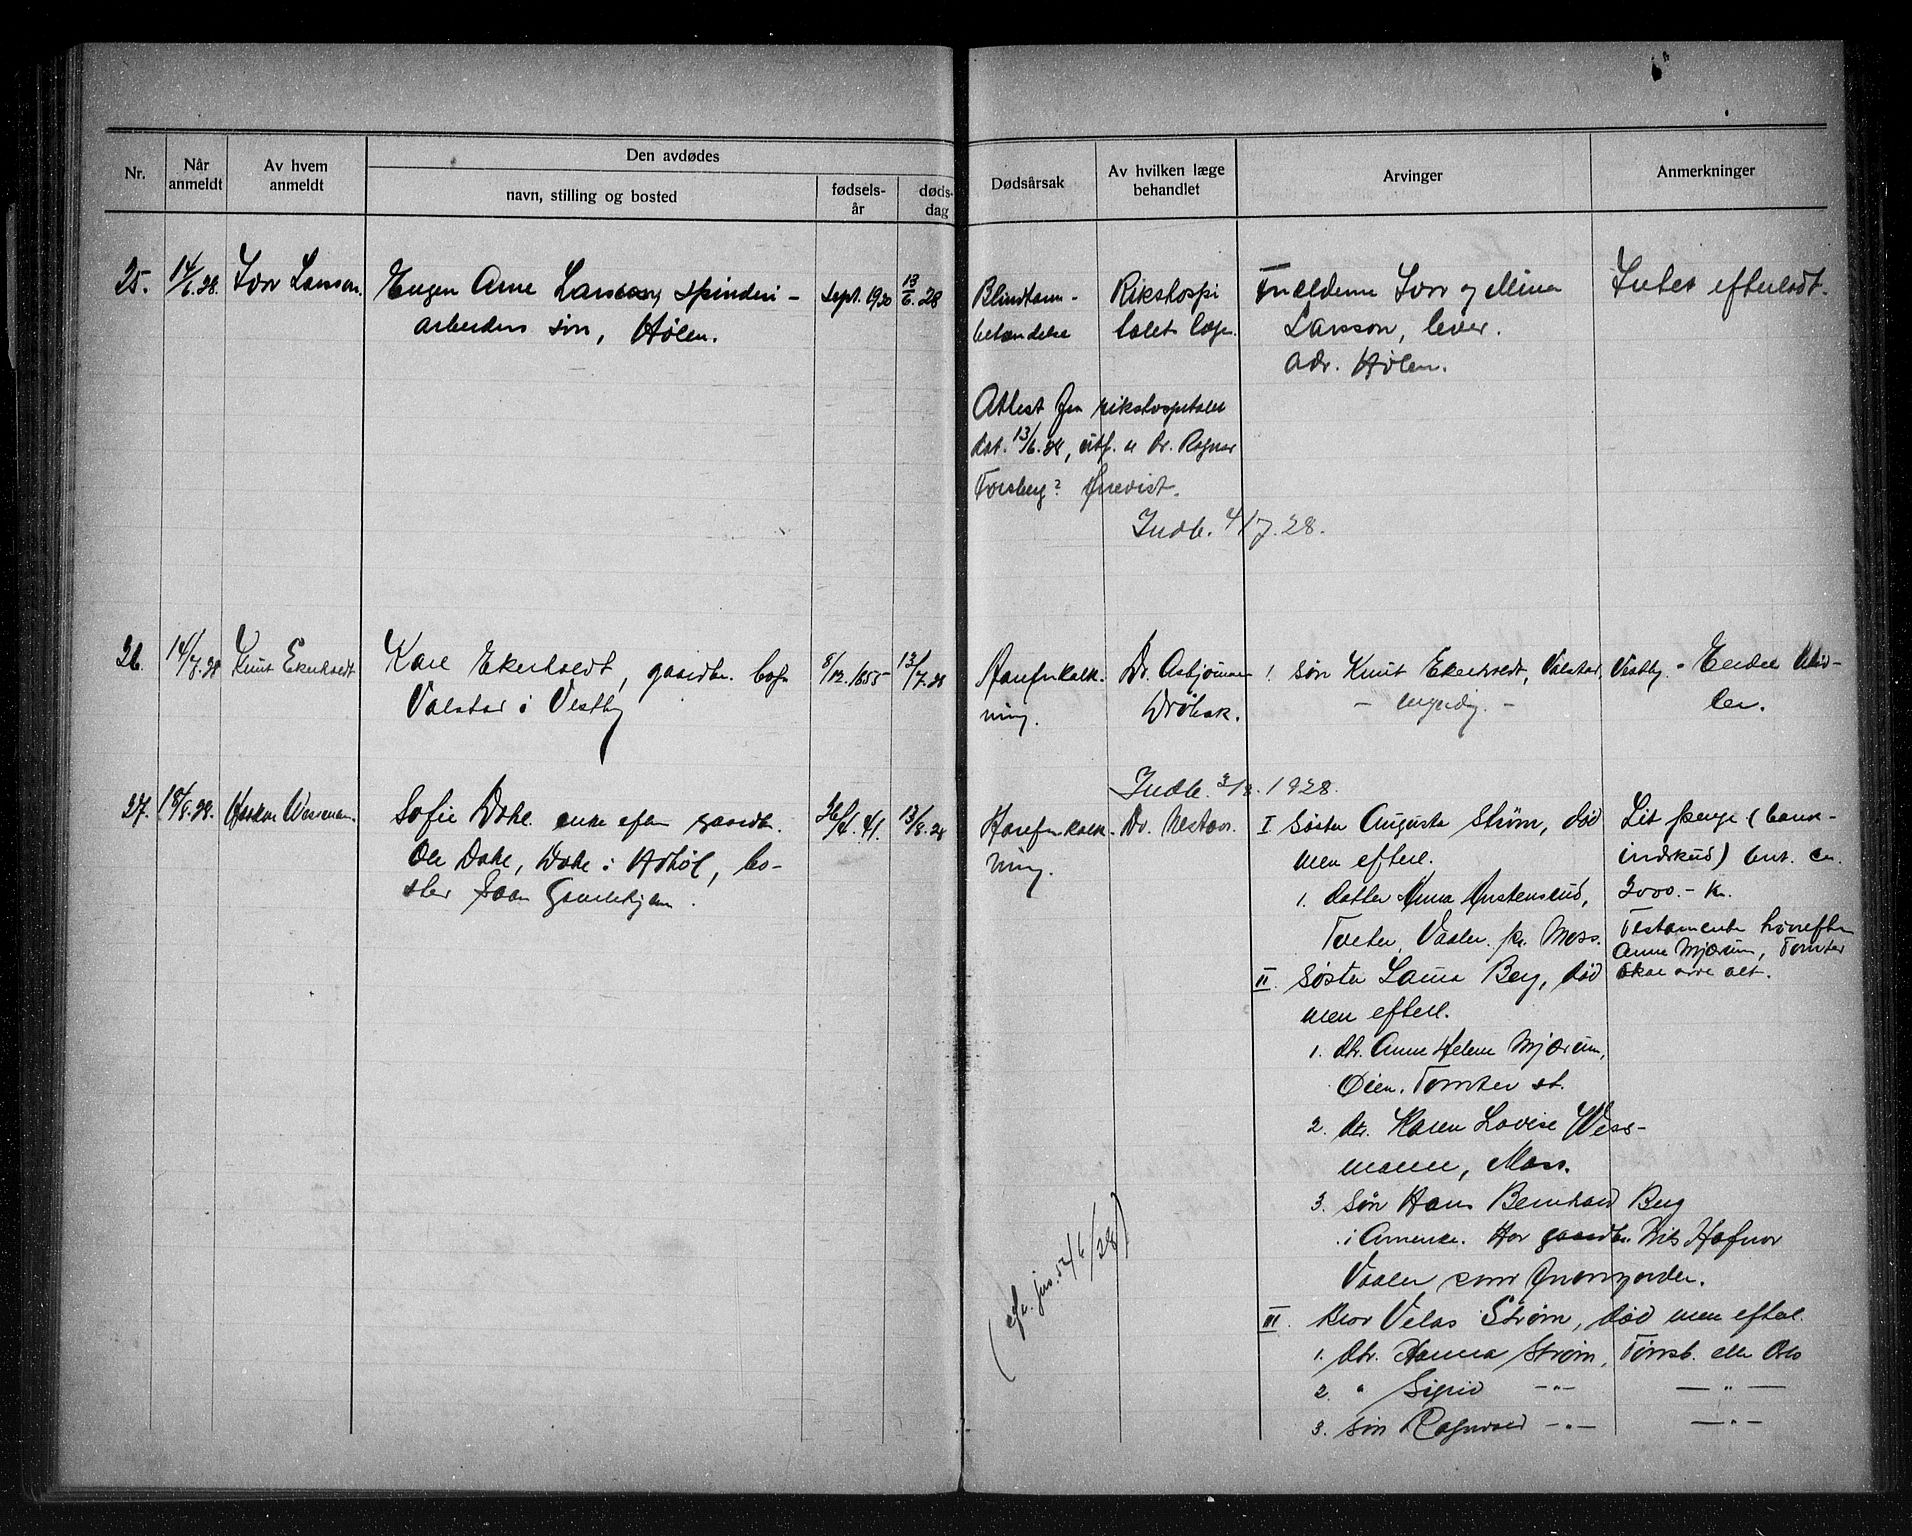 Nr.
Når
anmeldt
Av hvem
anmeldt
Den avdødes
navn, stilling og bosted
fødsels-
år
døds-
dag
Dødsårsak
Av hvilken læge
behandlet
Arvinger
Anmerkninger
25. 14/6.28. Ivar Larsson.
Eugen Arne Larsson, spinderi-
arbeiders søn, Hølen.
Sept. 1920
13/6.28
Blindtarm-
betændelse
Rikshospi
talets læge.
Forældrene Ivar og Mina
Larsson, lever.
Adr. Hølen.
Intet efterladt.
Attest fra rikshospitalet
dat. 13/6.28, utf. a Dr. Ragnar
Forsberg? Qvevist.
Indb. 4/7.28.
26. 14/7.28 Knut Ekerholdt
Karl Ekerholdt, gaardbr.
Valstar i Vestby
8/12.1855
13/7.28
Aarefrkalk-
ning.
Dr. Asbjørnsen
Drøbak.
1. søn Knut Ekerholdt, Valstar, Vestby.
- myndig. -
Indb. 3/8.1928.
27. 18/8.28. Haakon Wessmann.
Sofie Dahl enke efter gaardbr.
Ole Dahl, Dahl i Hobøl, bo-
ster Saan
26/4.41.
13/8.28
Aarefrkalk-
ning.
Dr. Nestaas.
I Søster Augusta Strøm, død
men efterl.
1. datter Anna Østensrud,
Tveter, Vaaler pr. Moss.
II. Søster Laura Berg, død
men efterl.
1. dtr. Anne Helene Mjærum,
Øien, Tomter st.
2. dtr. Karen Lovise Wess-
mann, Moss.
3. søn Hans Bernhard Berg
i Amerika. Har gaardbr. Nils Hafnor
Vaaler som
III. Bror Velas Strøm, død men efterl.
1. dtr. Hanna Strøm, Tønsb. eller Oslo
2. " Sigrid -"- -"-
3. søn Ragnvald -"- -"-
Lit penge (bank-
indskud) ca.
3000.- kr.
Testamente hvorefter
Anne Mjærum, Tomter
skal arve alt.